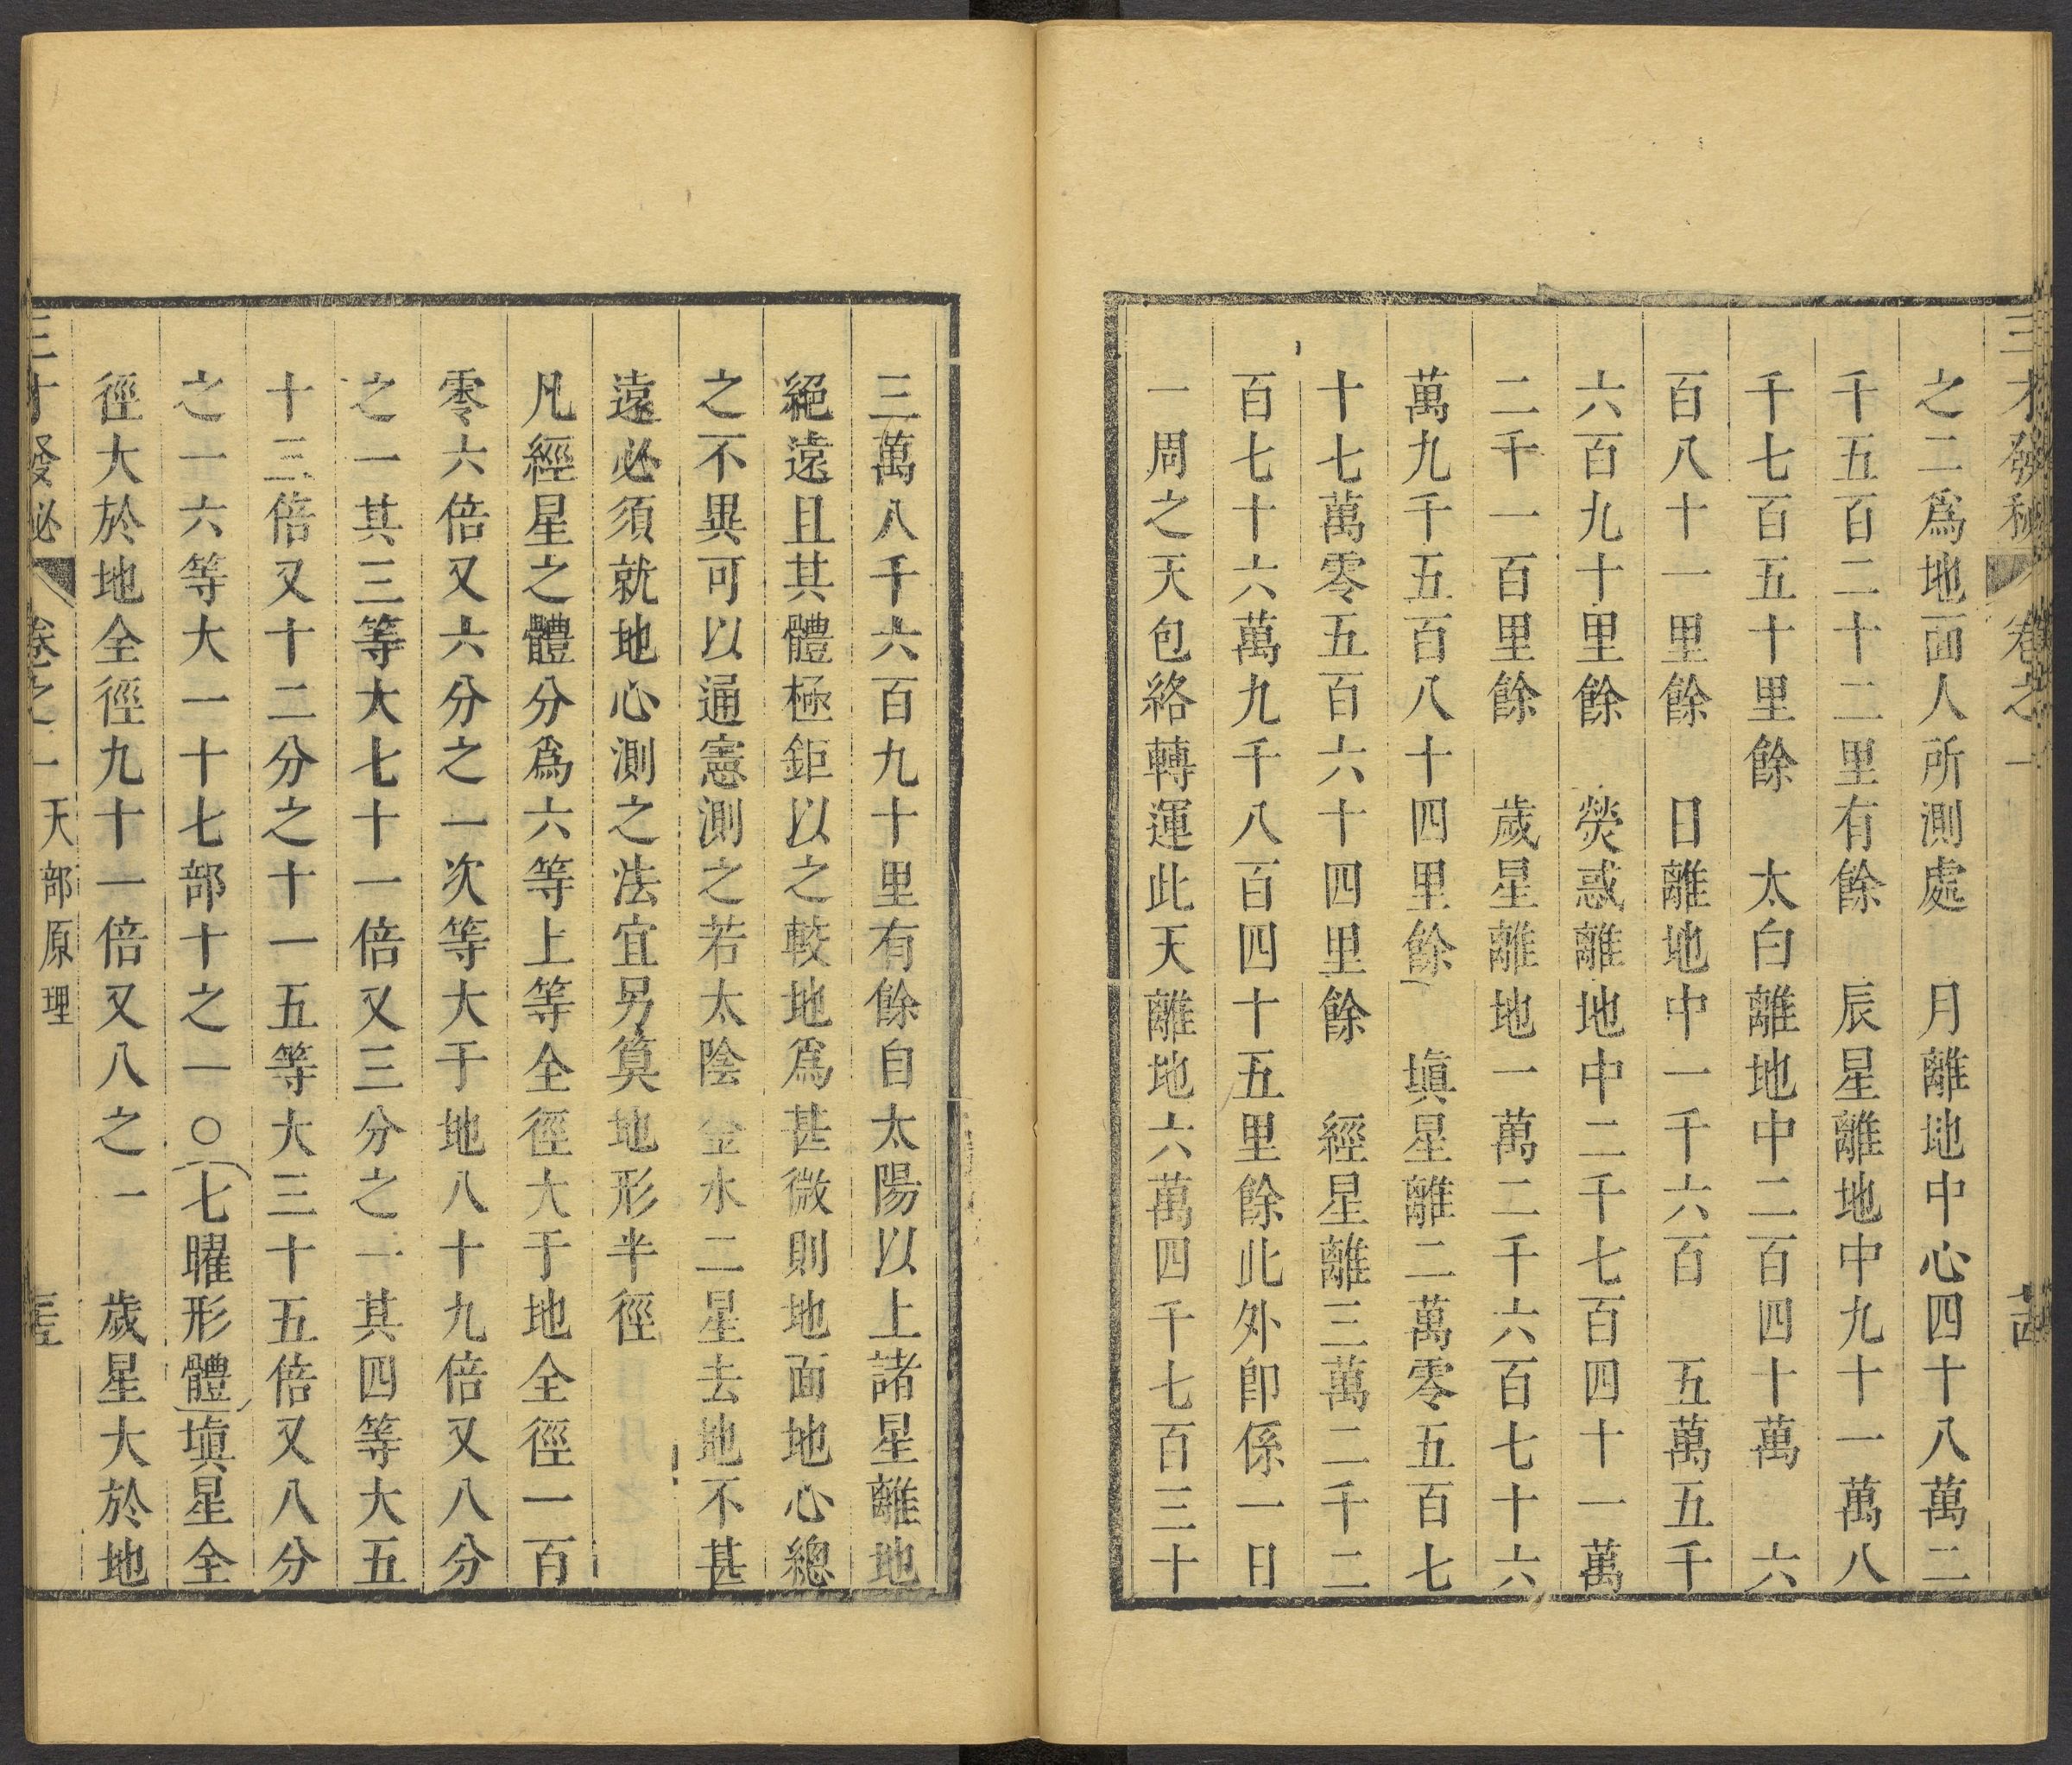 三才發秘 卷之一
之二爲地面人所測處 月離地中心四十八萬二
千五百二十二里有餘 辰星離地中九十一萬八
千七百五十里餘 太白離地中二百四十萬 六
百八十一里餘 日離地中一千六百 五萬五千
六百九十里餘 熒惑離地中二千七百四十一萬
二千一百里餘 歲星離地一萬二千六百七十六
萬九千五百八十四里餘 塡星離二萬零五百七
十七萬零五百六十四里餘 經星離三萬二千二
百七十六萬九千八百四十五里餘此外卽係一日
一周之天包絡轉運此天離地六萬四千七百三十
三萬八千六百九十里有餘自太陽以上諸星離地
絕遠且其體極鉅以之較地爲甚微則地面地心總
之不異可以通憲測之若太陰金水二星去地不甚
遠必須就地心測之法宜另筭地形半徑
凡經星之體分爲六等上等全徑大于地全徑一百
零六倍又六分之一次等大于地八十九倍又八分
之一其三等大七十一倍又三分之一其四等大五
十三倍又十二分之十一五等大三十五倍又八分
之一六等大一十七部十之一○七曜形體塡星全
徑大於地全徑九十一倍又八之一 歲星大於地
三才發秘 卷之一 天部原理